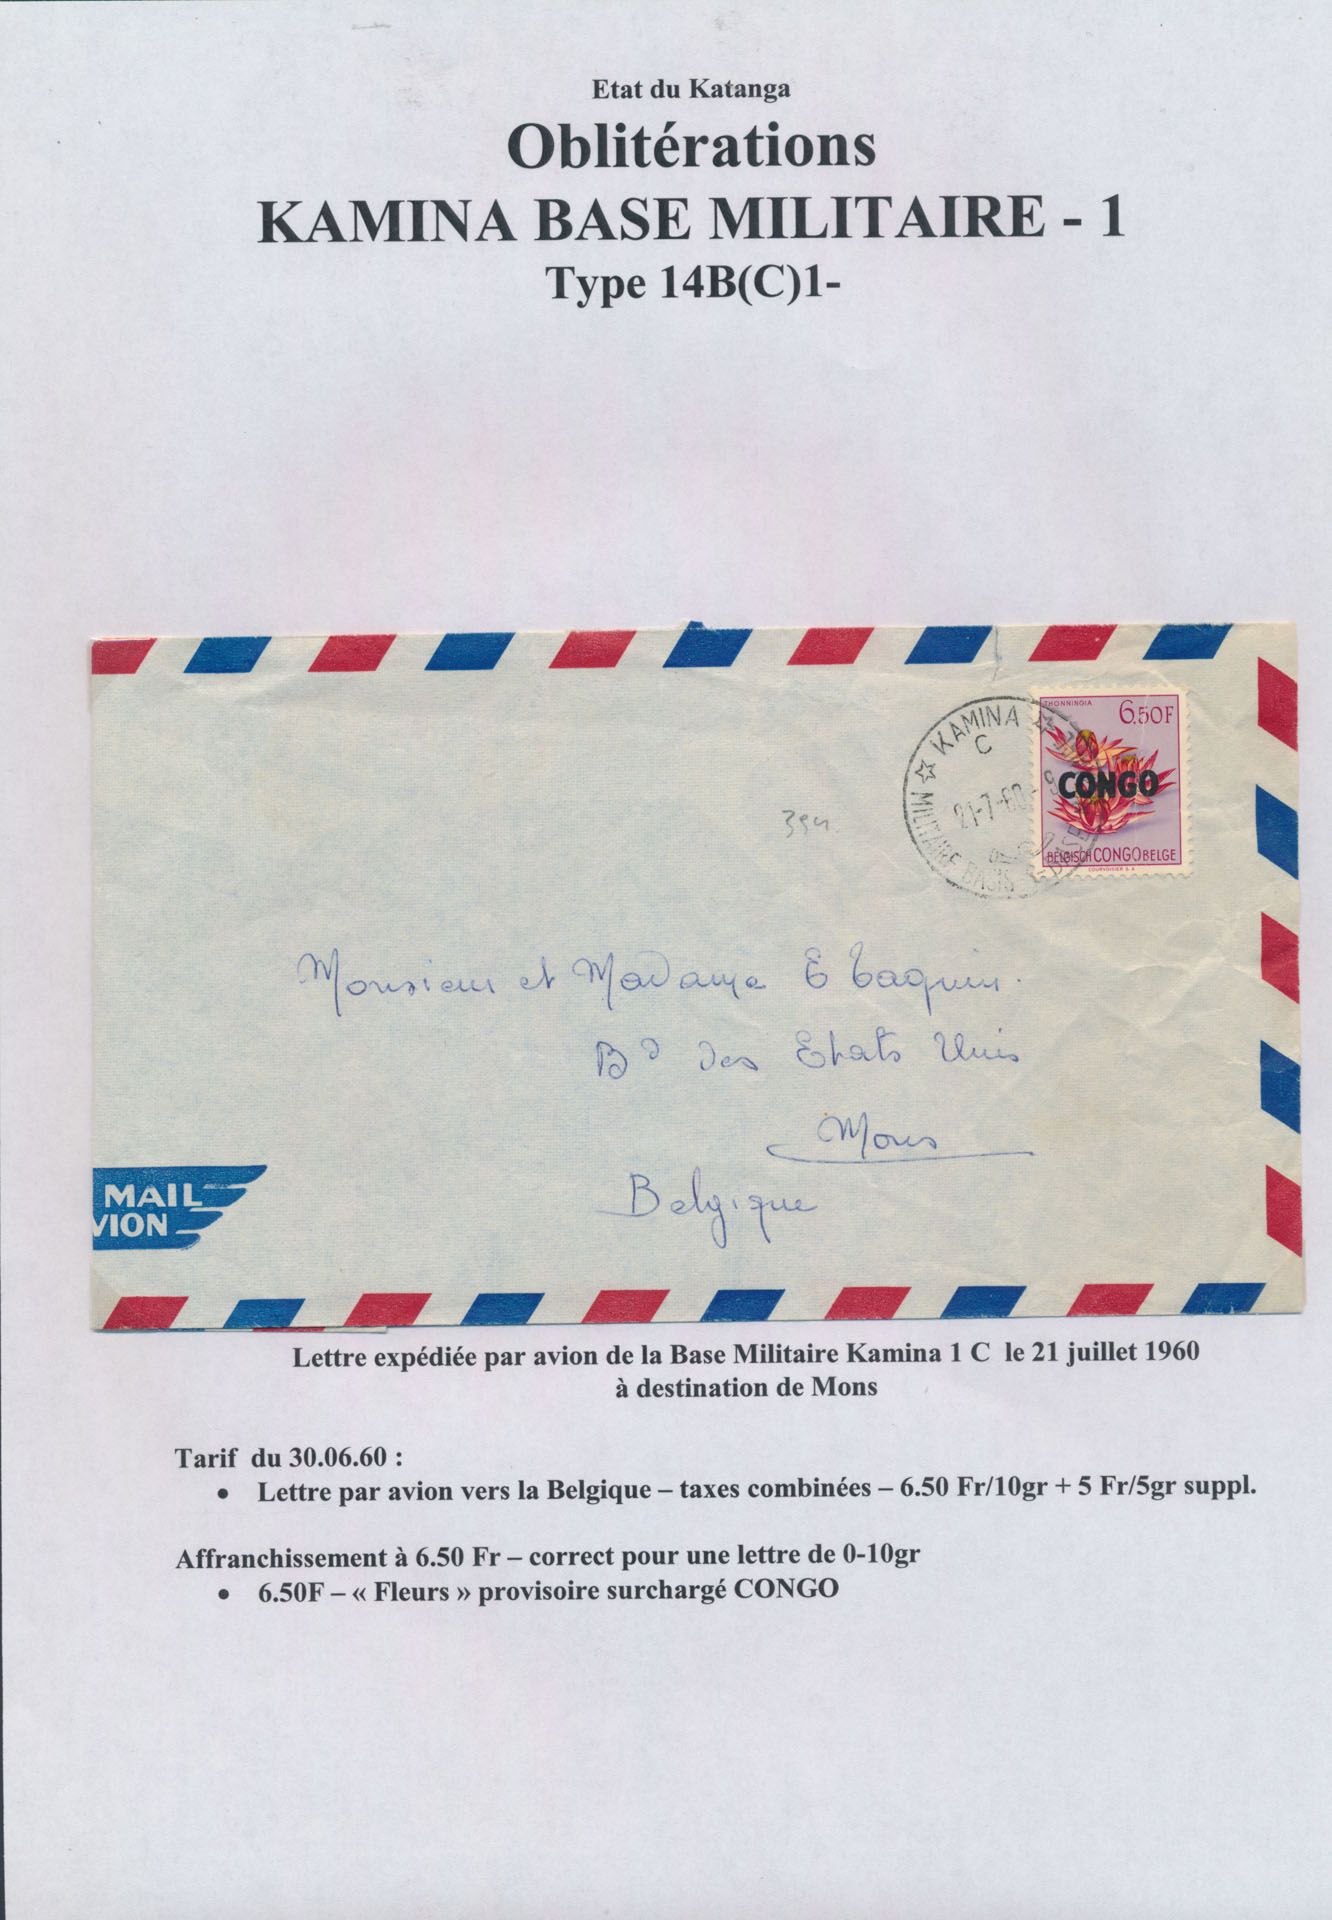 Etat du Katanga
Oblitérations
KAMINA BASE MILITAIRE - 1
Type 14B(C)1-
THONNINGIA
6.50F
CONGO
BELGISCH CONGO BELGE
COURVOISIER S.A.
KAMINA
C
21-7-60
MILITAIRE BASIS
Monsieur et Madame E Taquin.
Bd des Etats Unis
Mons
Belgique
MAIL
VION
Lettre expédiée par avion de la Base Militaire Kamina 1 C le 21 juillet 1960
à destination de Mons
Tarif du 30.06.60 :
• Lettre par avion vers la Belgique – taxes combinées – 6.50 Fr/10gr + 5 Fr/5gr suppl.
Affranchissement à 6.50 Fr – correct pour une lettre de 0-10gr
• 6.50F – « Fleurs » provisoire surchargé CONGO